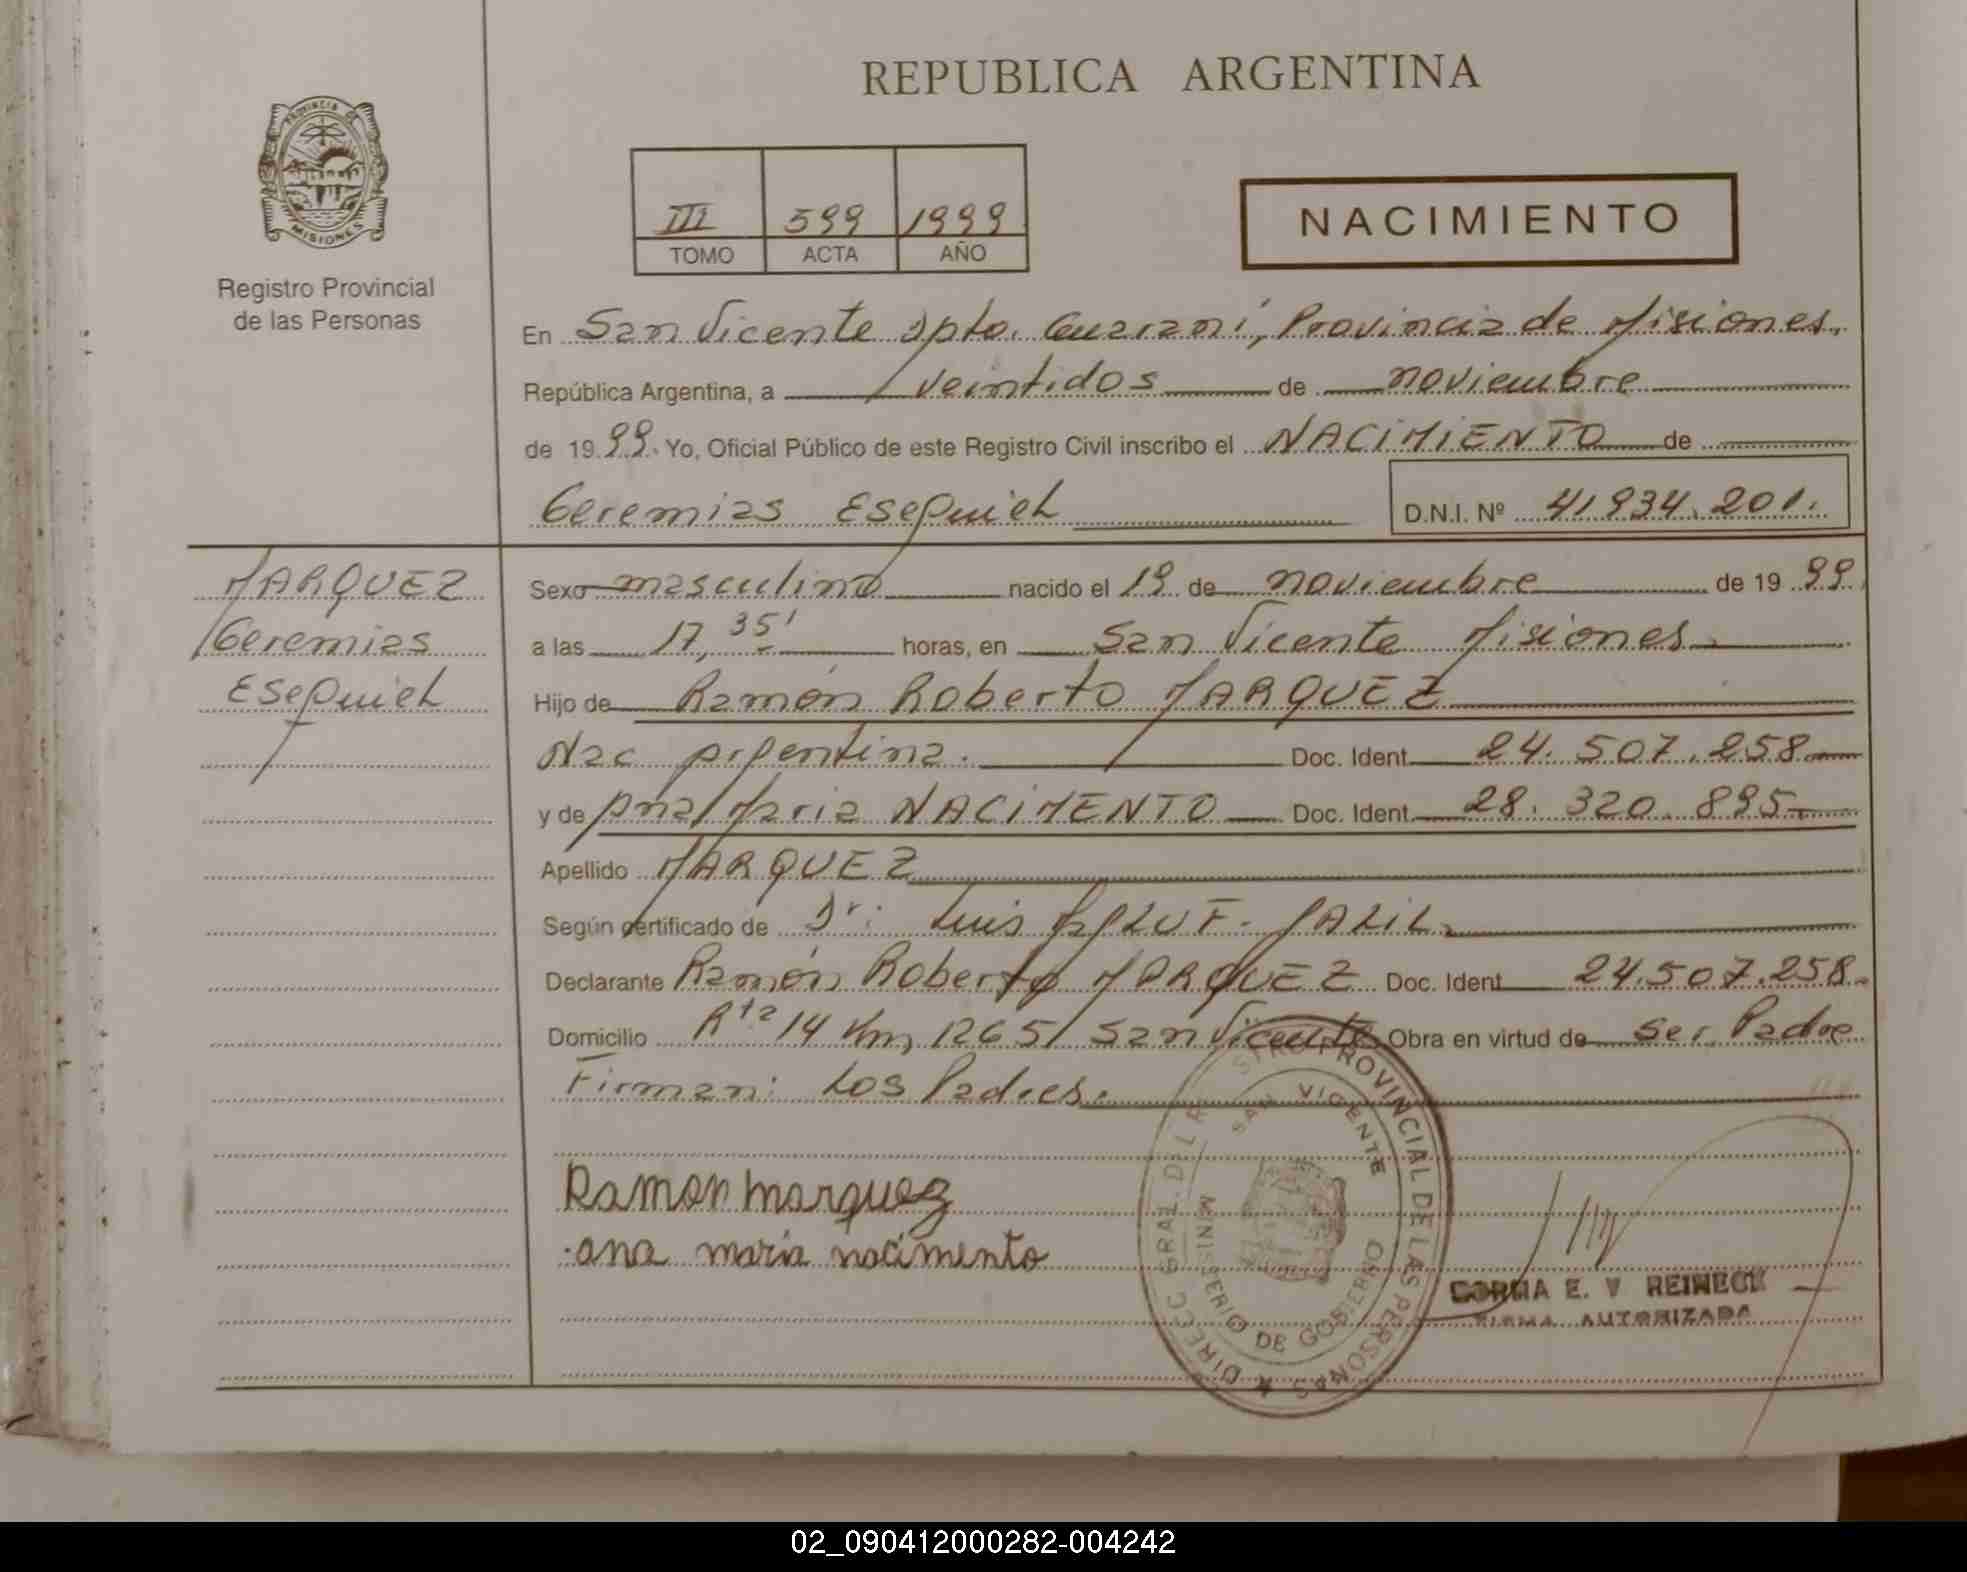 REPUBLICA ARGENTINA
PROVINCIA DE
MISIONES
Registro Provincial
de las Personas
III 599 1999
TOMO ACTA AÑO
NACIMIENTO
En San Vicente Dpto. Guarani, Provincia de Misiones,
República Argentina, a veintidos de noviembre
de 1999. Yo, Oficial Público de este Registro Civil inscribo el NACIMIENTO de
Geremias Esequiel D.N.I. Nº 41.934.201.
MARQUEZ
Geremias
Esequiel
Sexo masculino nacido el 19 de noviembre de 1999.
a las 17,35' horas, en San Vicente Misiones
Hijo de Ramón Roberto MARQUEZ
Nac argentina. Doc. Ident. 24.507.258
y de Ana Maria NACIMENTO Doc. Ident. 28.320.895
Apellido MARQUEZ
Según certificado de Dr: Luis
Declarante Ramón Roberto MARQUEZ Doc. Ident 24.507.258.
Domicilio Rta 14 Km 1265 San Vicente Obra en virtud de ser Padre
Firman: Los Padres.
Ramon marquez
ana maria nacimento
DIRECC GRAL DEL REGISTRO PROVINCIAL DE LAS PERSONAS
SAN VICENTE
MINISTERIO DE GOBIERNO
E. V REINECK
FIRMA AUTORIZADA
02_090412000282-004242